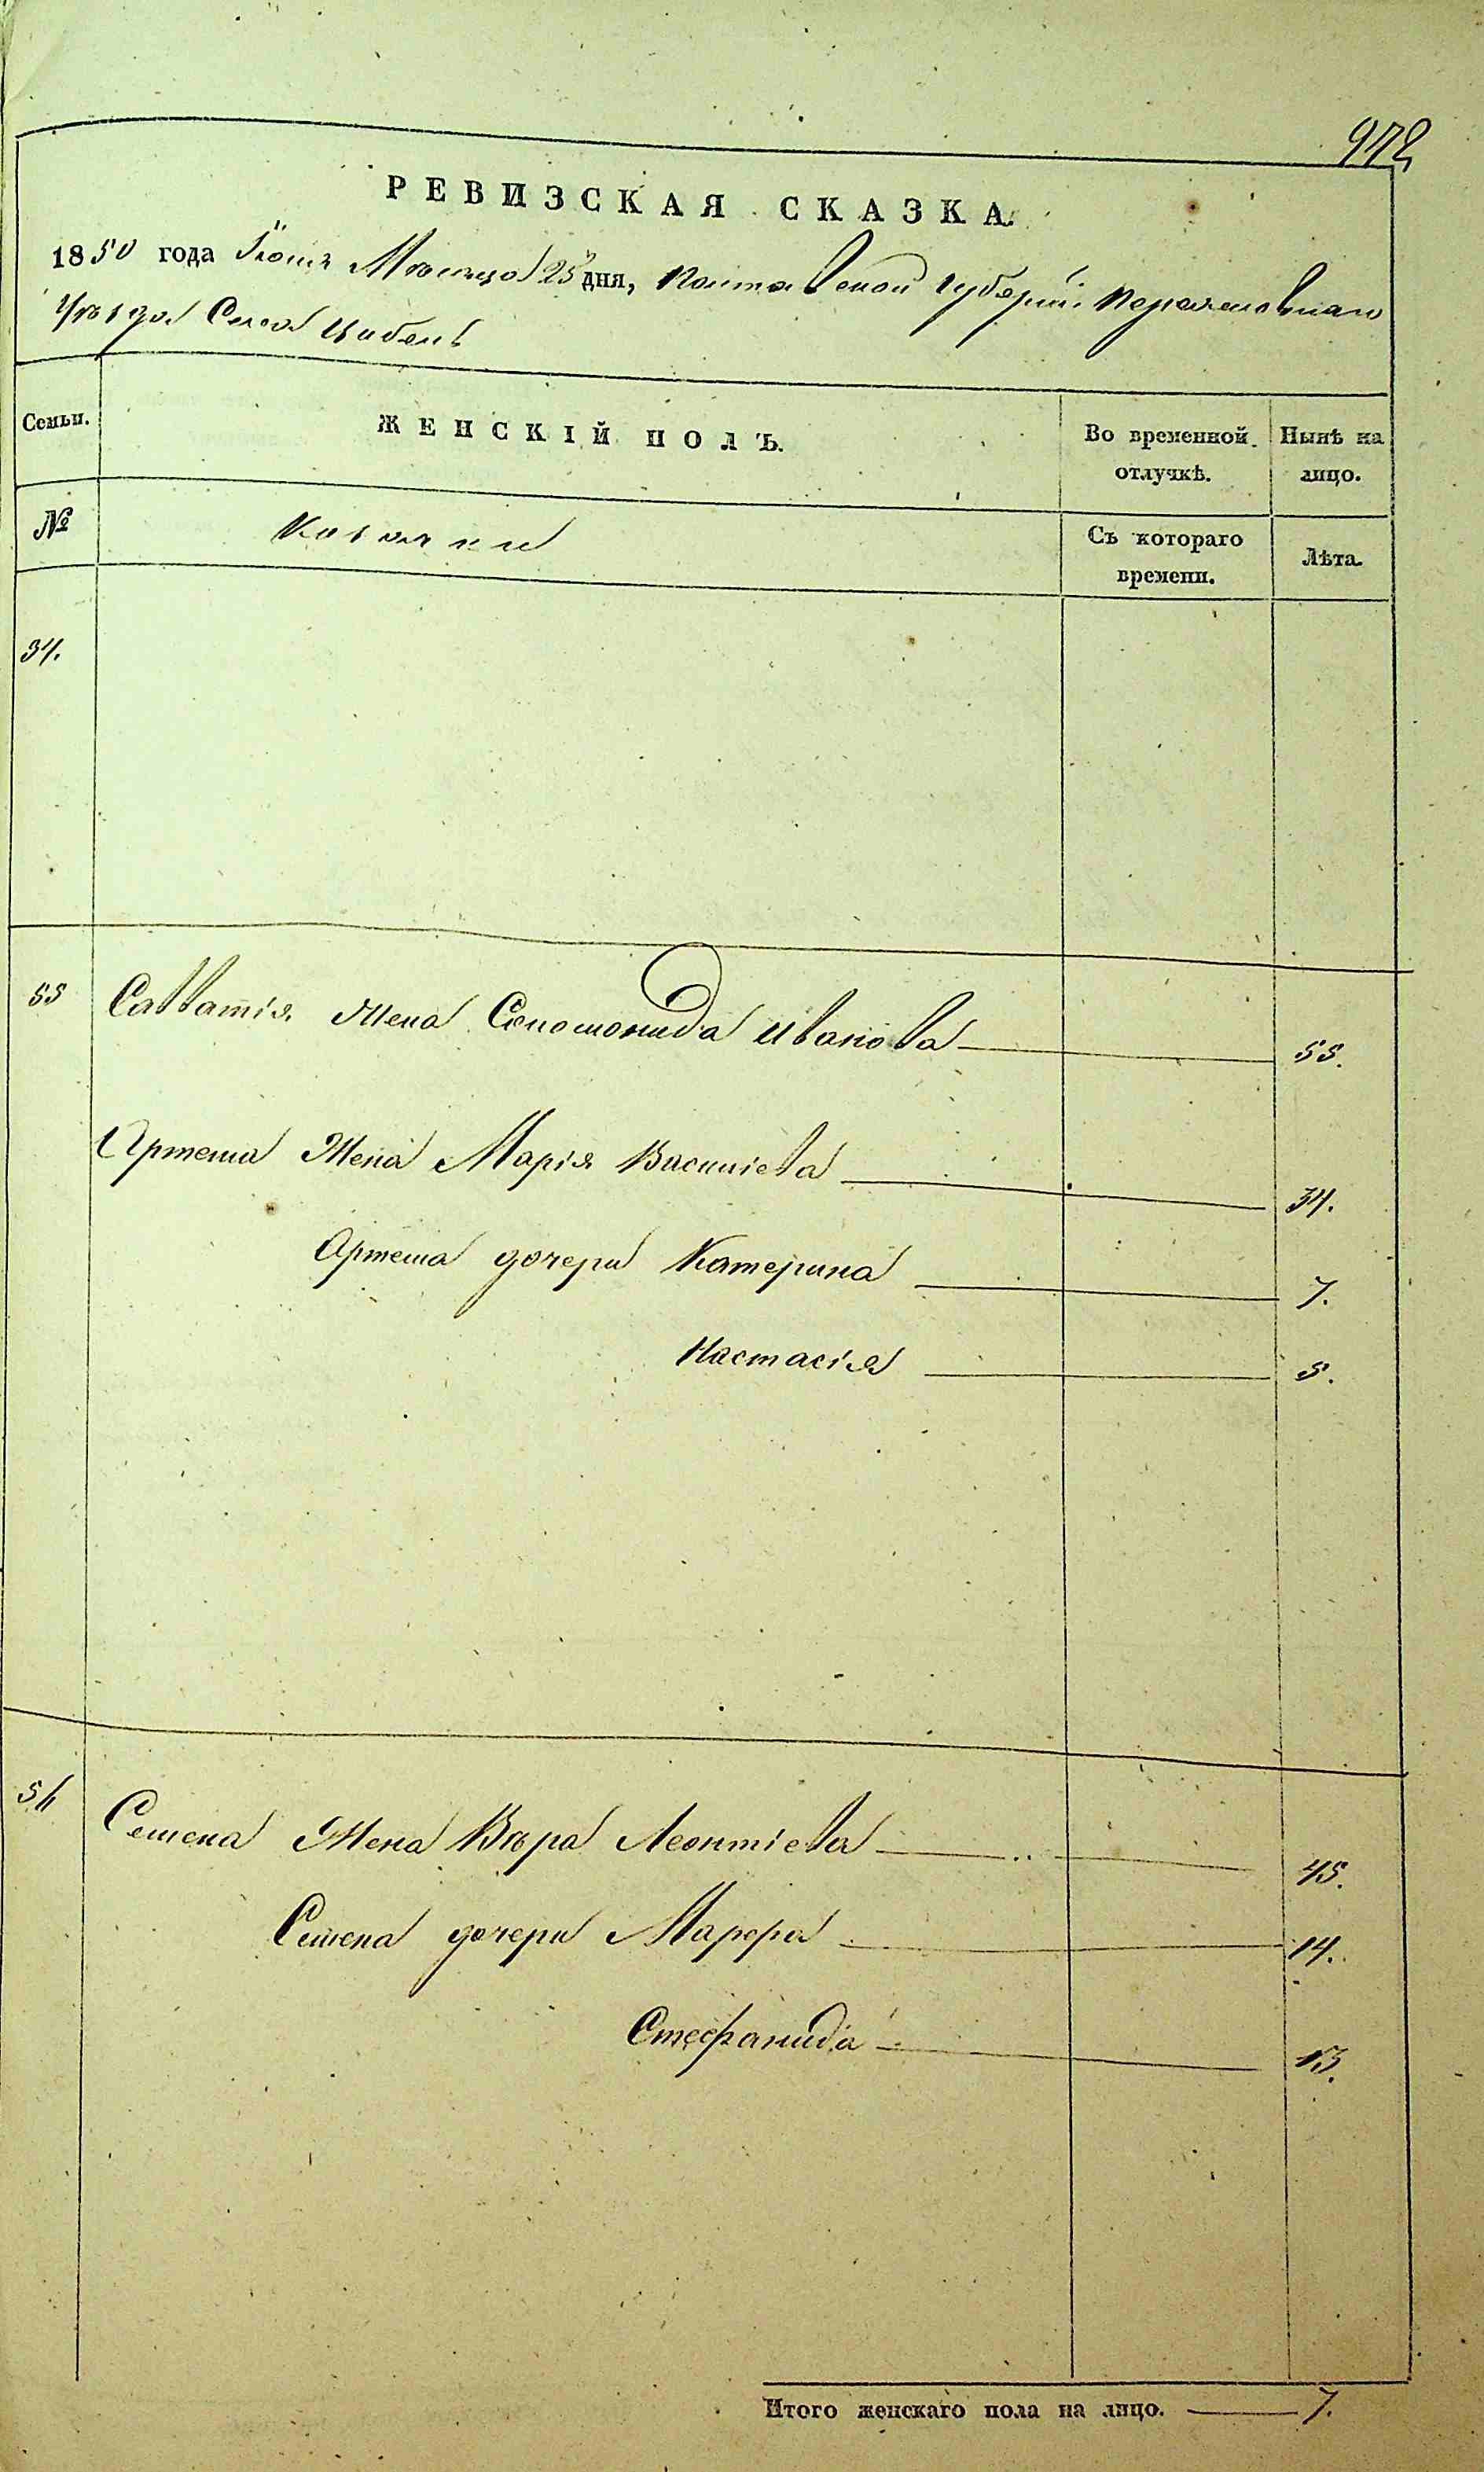 972
РЕВИЗСКАЯ СКАЗКА.
1850 года Іюня Мѣсяца 25 дня, Полтавской Губерніи Переяславскаго
Уѣзда Села Цибель
Семьи.
ЖЕНСКІЙ ПОЛЪ.
Во временной отлучкѣ.
Нынѣ на лицо.
№
Козачки
Съ котораго времени.
Лѣта.
34.
55 Савватія Жена Соломонида Иванова 55.
Артема Жена Марія Василіева 34.
Артема дочери Катерина 7.
Настасія 5.
56 Семена Жена Вѣра Леонтіева 45.
Семена дочери Марфа 14.
Стефанида 13.
Итого женскаго пола на лицо. 7.